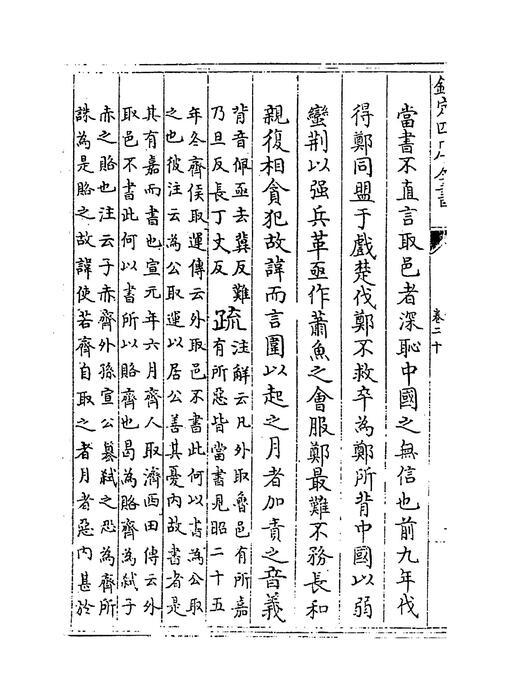 欽定四庫全書
卷二十
當書不直言取邑者深恥中國之無信也前九年伐
得鄭同盟于戲楚伐鄭不救卒為鄭所背中國以弱
蠻荆以强兵革亟作蕭魚之會服鄭最難不務長和
親復相貪犯故諱而言圍以起之月者加責之音義
背音佩亟去冀反難
乃旦反長丁丈反
疏
注解云凡外取魯邑有所嘉
有所惡皆當書見昭二十五
年冬齊侯取運傳云外取邑不書此何以書為公取
之也彼注云為公取運以居公善其憂內故書者是
其有嘉而書也宣元年六月齊人取濟西田傳云外
取邑不書此何以書所以賂齊也曷為賂齊為弑子
赤之賂也注云子赤齊外孫宣公簒弑之恐為齊所
誅為是賂之故諱使若齊自取之者月者惡內甚於